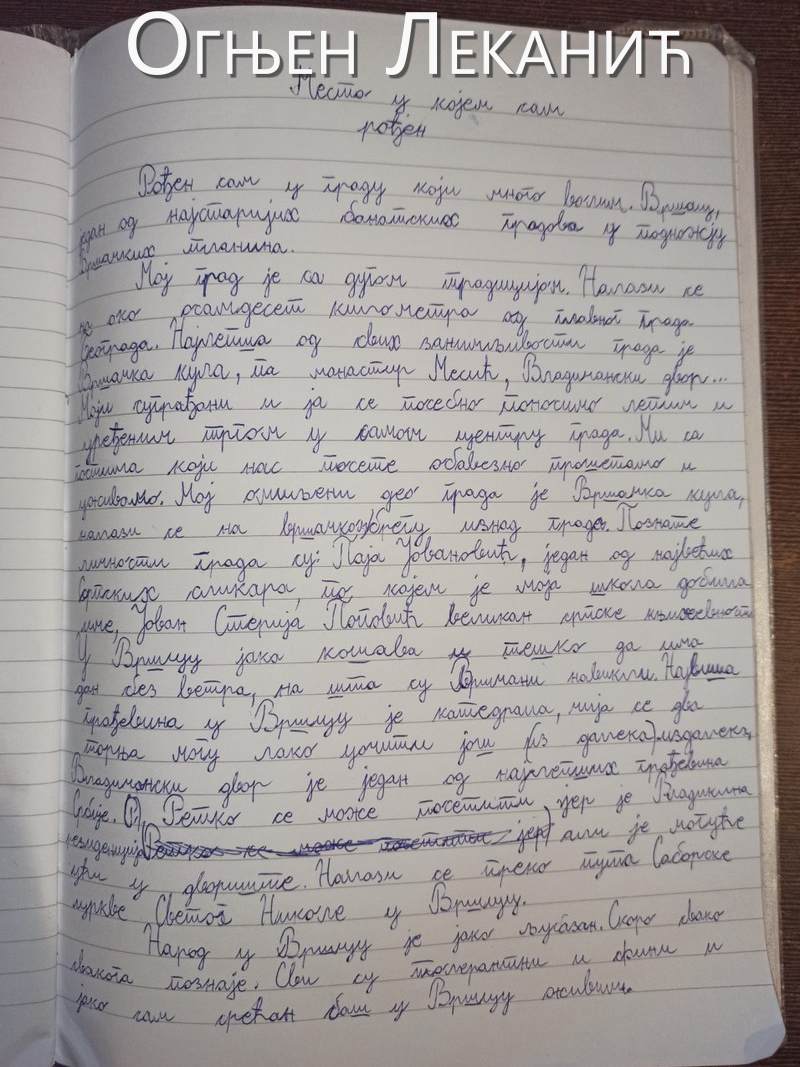 Огњен Леканић
Место у којем сам
рођен
Рођен сам у граду који много волим. Вршац,
један од најстаријих банатских градова у подножју
Вршачких планина.
Мој град је са дугом традицијом. Налази се
на око осамдесет километра од главног града
Београда. Најлепша од свих занимљивости града је
Вршачка кула, па манастир Месић, Владичански двор...
Моји суграђани и ја се посебно поносимо лепим и
уређеним тргом у самом центру града. Ми са
гостима који нас посете обавезно прошетамо и
уживамо. Мој омиљени део града је Вршачка кула,
налази се на вршачком брегу изнад града. Познате
личности града су: Паја Јовановић, један од највећих
српских сликара, по којем је моја школа добила
име, Јован Стерија Поповић великан српске књижевности
У Вршцу јака кошава и тешко да има
дан без ветра, на шта су Вршчани навикли. Највиша
грађевина у Вршцу је катедрала, чија се два
торња могу лако уочити још (из далека) издалека,
Владичански двор је један од најлепших грађевина
Србије. Ретко се може посетити јер је Владикина
резиденција (Ретко се може посетити јер) али је могуће
ући у двориште. Налази се преко пута Саборске
цркве Светог Николе у Вршцу.
Народ у Вршцу је јако љубазан. Скоро свако
свакога познаје. Сви су толерантни и фини и
јако сам срећан баш у Вршцу живим.